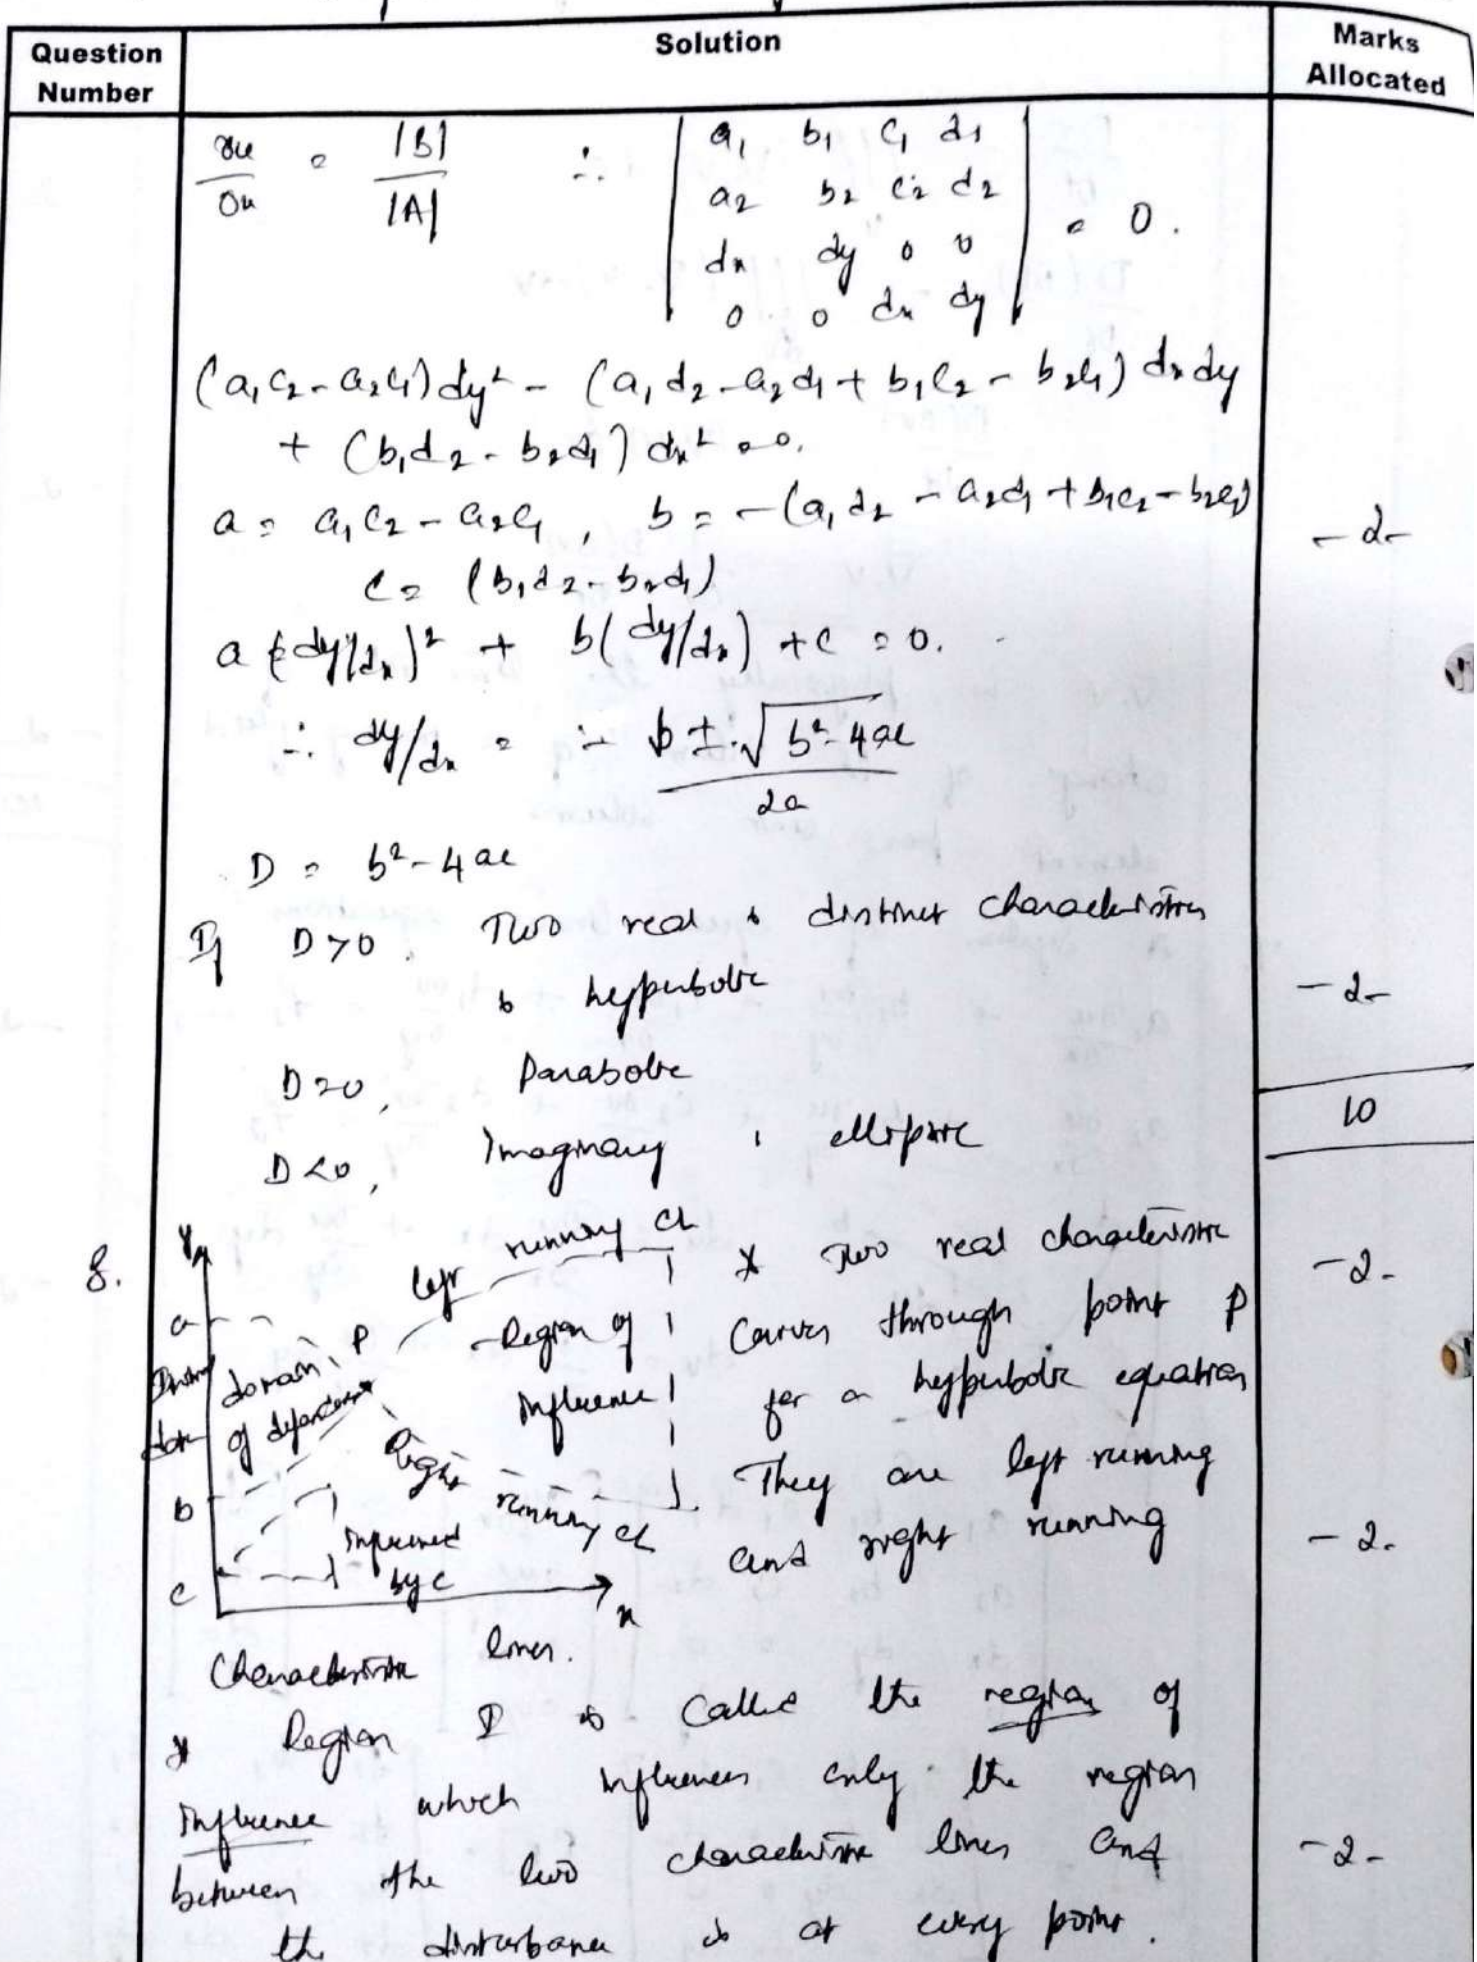 Question Number
Solution
Marks Allocated
∂u/∂x = |B|/|A| ∴ | a1 b1 c1 d1 |
| a2 b2 c2 d2 | = 0.
| dx dy 0 0 |
| 0 0 dx dy |
(a1c2 - a2c1) dy² - (a1d2 - a2d1 + b1c2 - b2c1) dx dy
+ (b1d2 - b2d1) dx² = 0.
a = a1c2 - a2c1, b = -(a1d2 - a2d1 + b1c2 - b2c1)
- 2 -
c = (b1d2 - b2d1)
a (dy/dx)² + b(dy/dx) + c = 0.
∴ dy/dx = - b ± √b² - 4ac
2a
D = b² - 4ac
If D > 0. Two real & distinct characteristics
& hyperbolic
- 2 -
D = 0, Parabolic
10
D < 0, Imaginary, elliptic
8.
y
a
b
c
x
left running ch
P
domain of dependence
Region of influence
Right running ch
influenced by c
* Two real characteristic
- 2 -
curves through point P
for a hyperbolic equation
They are left running
and right running
- 2 -
characteristic lines.
* Region I is called the region of
influence which influences only the region
between the two characteristic lines and
- 2 -
the disturbance is at every point.